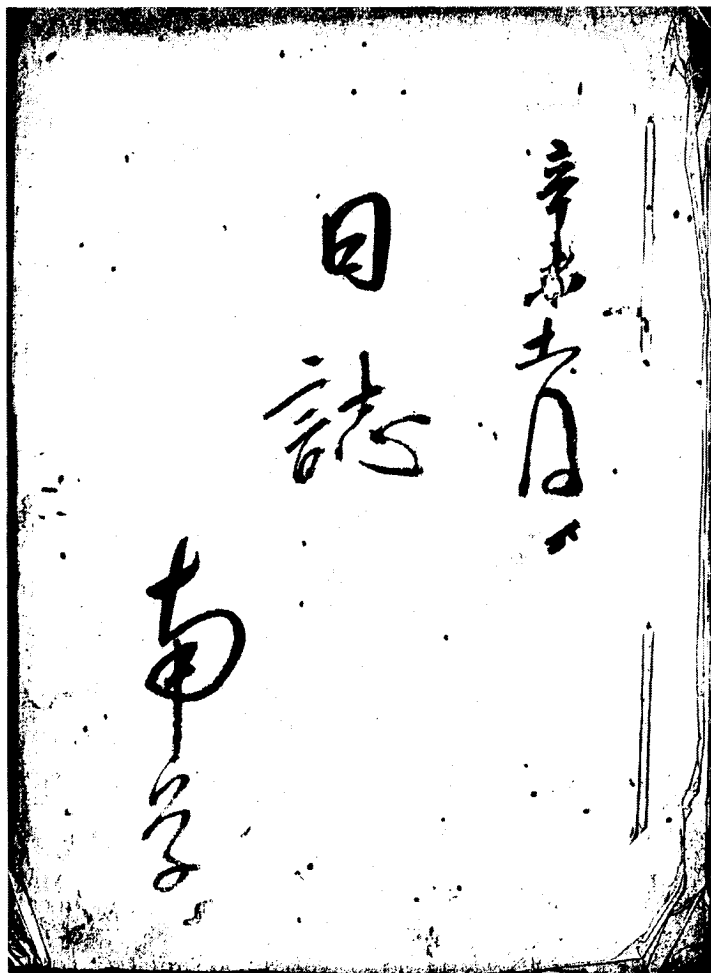 辛未十一月
日誌
南学